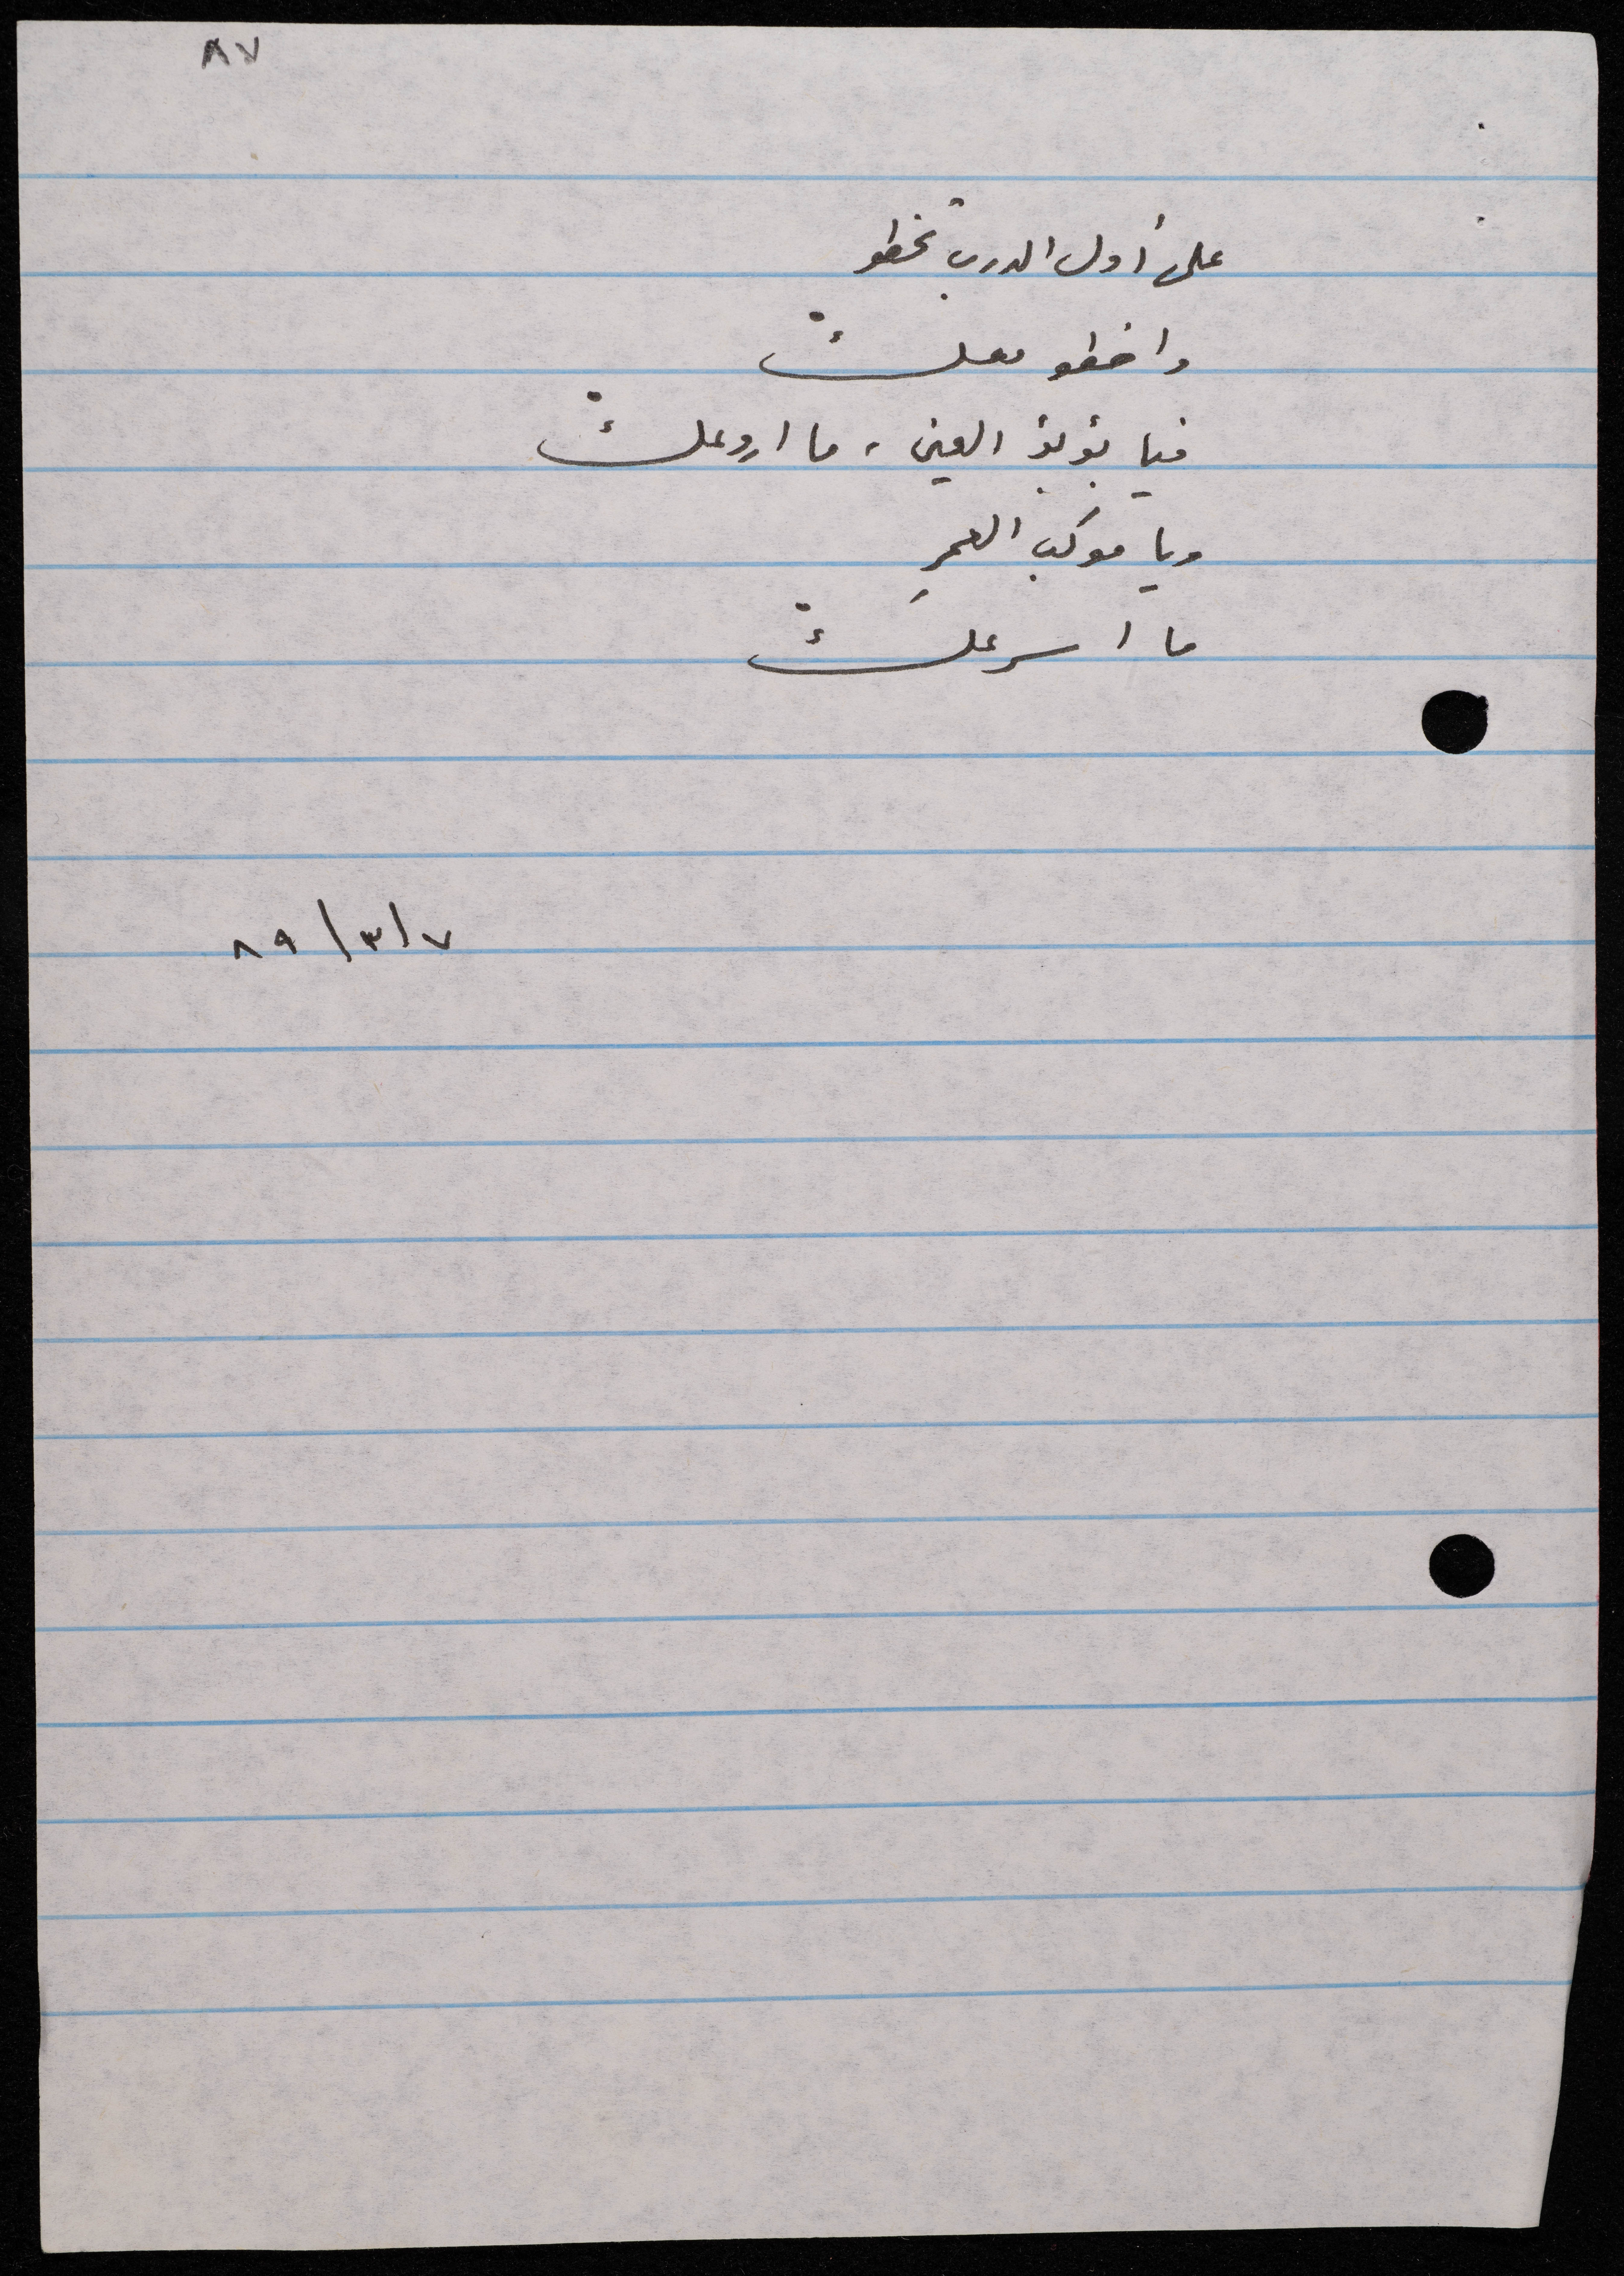 ٨٧
على أول الدرب تخطو
واخطو معكْ
فيا بؤبؤ العين، ما اروعكْ
ويا موكب العمرِ
ما اسرعكْ
٨٩/٣/٧